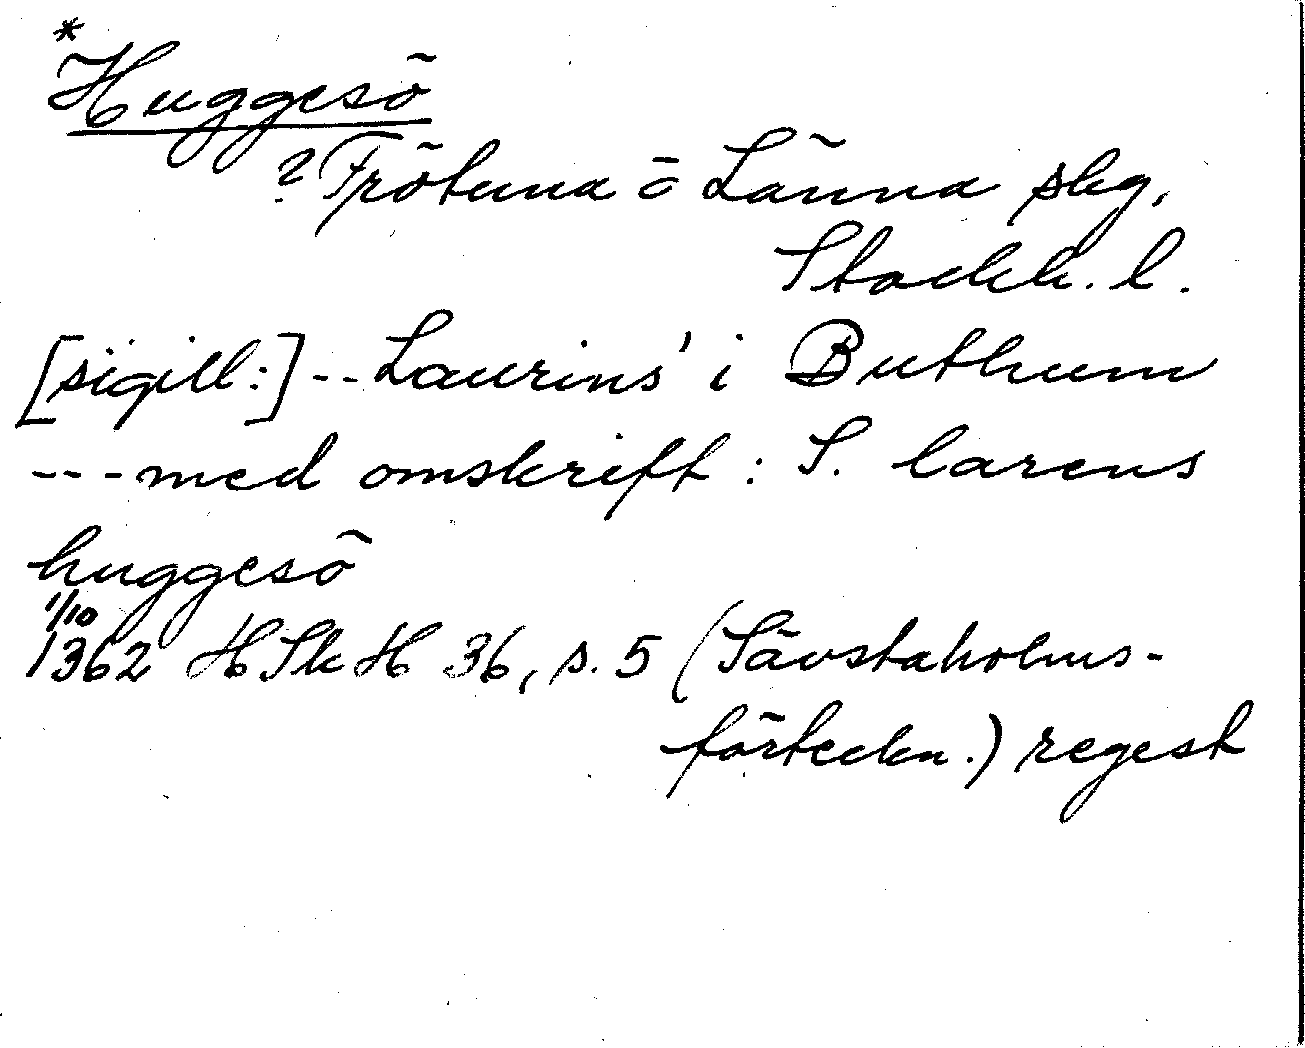 *
Huggesö
? Frötuna o Länna skg,
Stockh. l.
[sigill:] -- Laurins' i Buthum
--- med omskrift: S. larens
huggesö
1/10
1362 HSkH 36, s. 5 (Sävstaholms-
förteckn.) regest